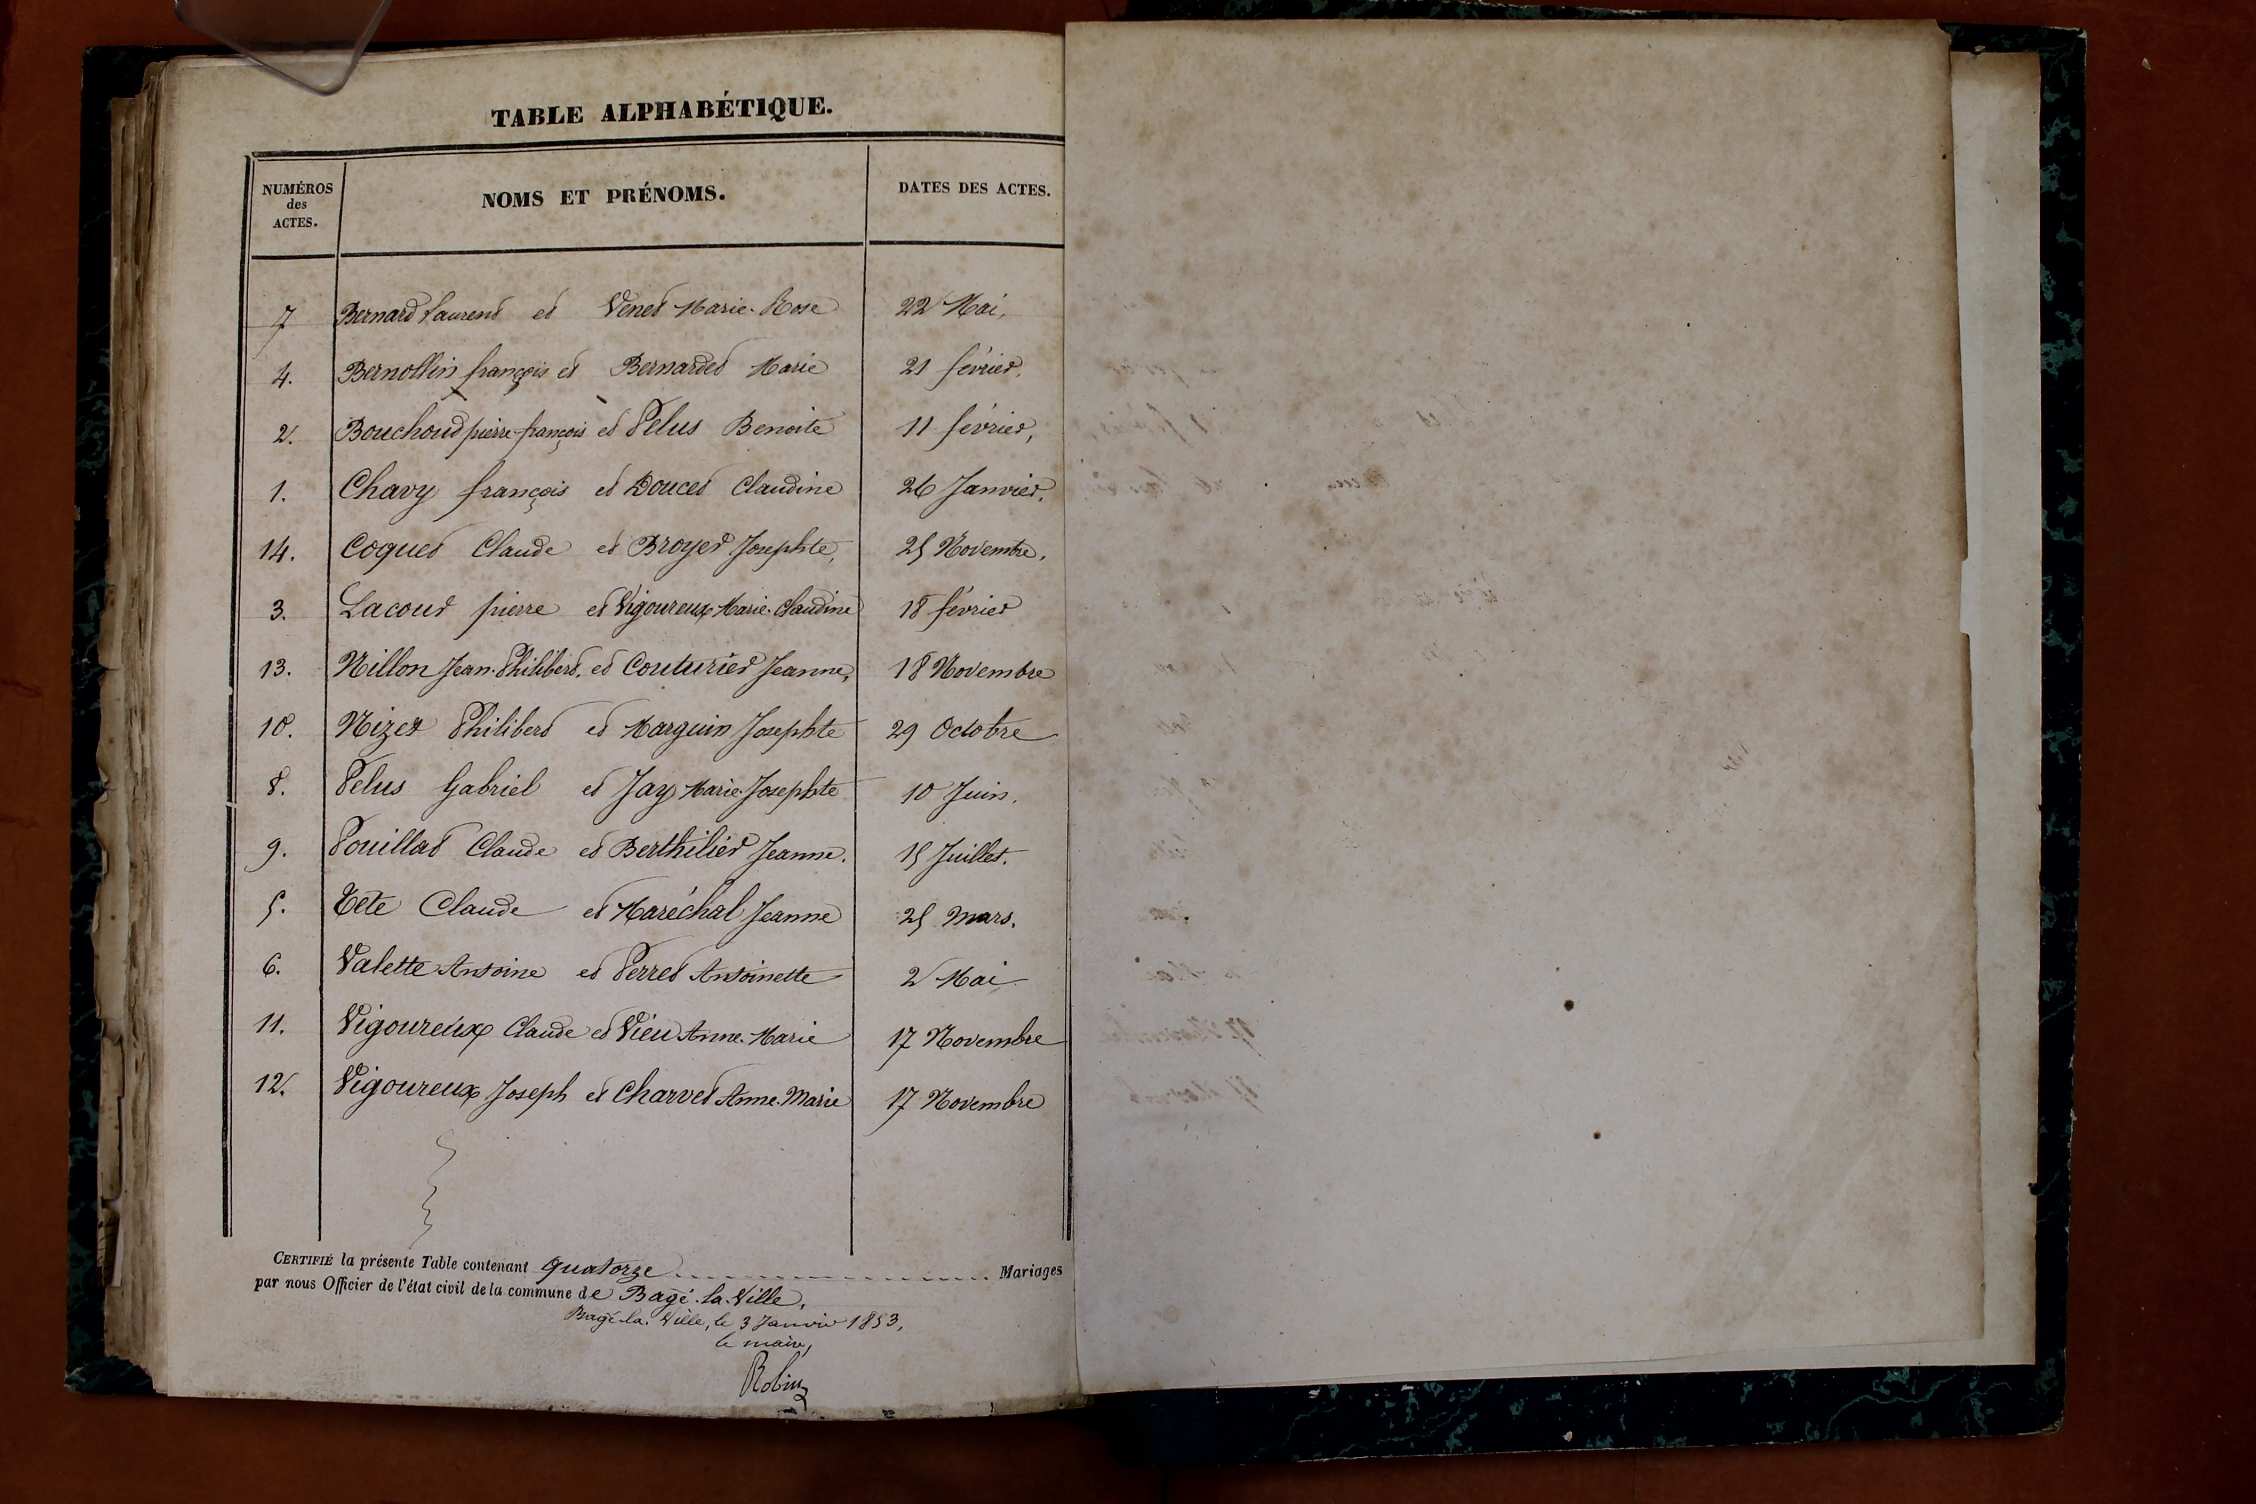 TABLE ALPHABÉTIQUE.
NUMÉROS des ACTES. NOMS ET PRÉNOMS. DATES DES ACTES.
7 Bernard Laurent et Venet Marie-Rose 22 Mai,
4. Bernollin françois et Bernardet Marie 21 février,
2. Bouchoud pierre-françois et Pelus Benoite 11 février,
1. Chavy françois et Doucet Claudine 26 Janvier,
14. Coquet Claude et Broyer Josephte, 25 Novembre,
3. Lacour pierre et Vigoureux Marie-Claudine 18 février
13. Nillon Jean-Philibert, et Couturier Jeanne, 18 Novembre
10. Nizet Philibert et Marguin Josephte 29 Octobre
8. Pelus Gabriel et Jay Marie-Josephte 10 Juin,
9. Pouillat Claude et Berthilier Jeanne. 15 Juillet.
5. Tete Claude et Maréchal Jeanne 25 Mars.
6. Valette Antoine et Perret Antoinette 2 Mai
11. Vigoureux Claude et Vieu Anne-Marie 17 Novembre
12. Vigoureux Joseph et Charvet Anne-Marie 17 Novembre
CERTIFIÉ la présente Table contenant quatorze Mariages
par nous Officier de l'état civil de la commune de Bagé-la-Ville,
Bagé-la-Ville, le 3 Janvier 1853,
le maire,
Robin